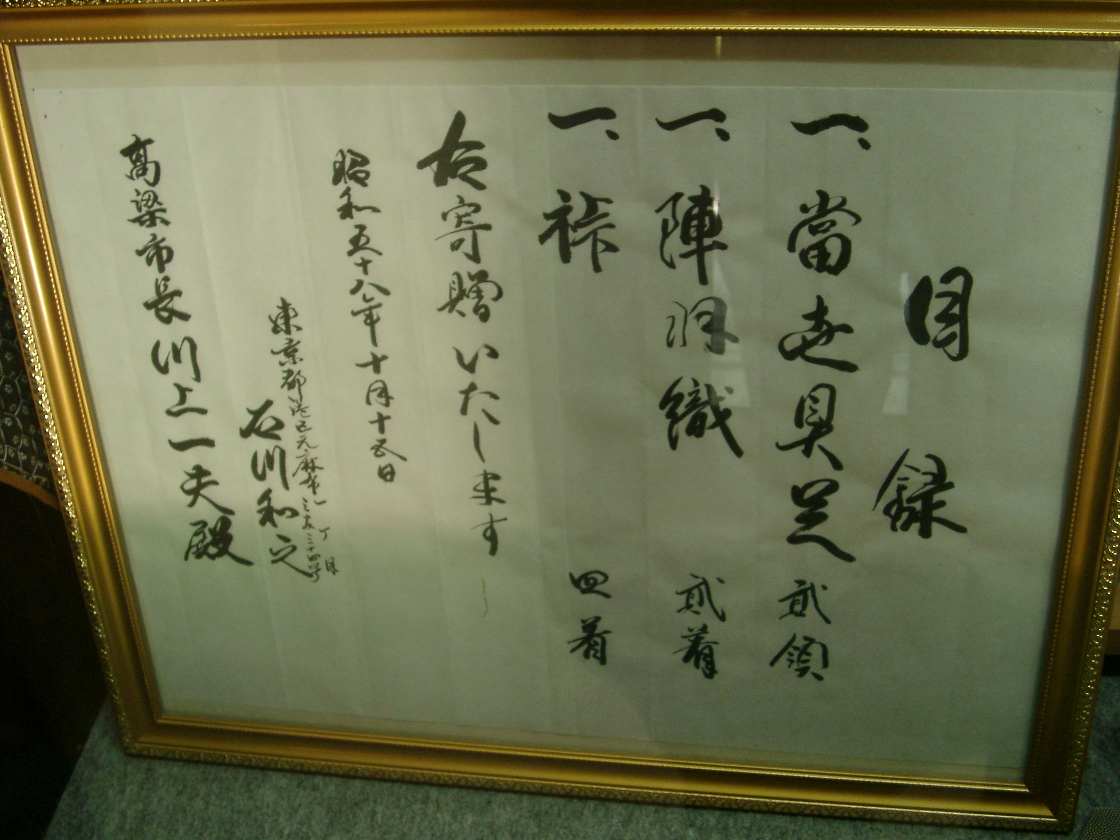 目録
一、當世具足 貳領
一、陣羽織 貳着
一、裃 四着
右寄贈いたします
昭和五十八年十月十五日
東京都港区元麻布一丁目
石川和之
高梁市長川上一夫殿